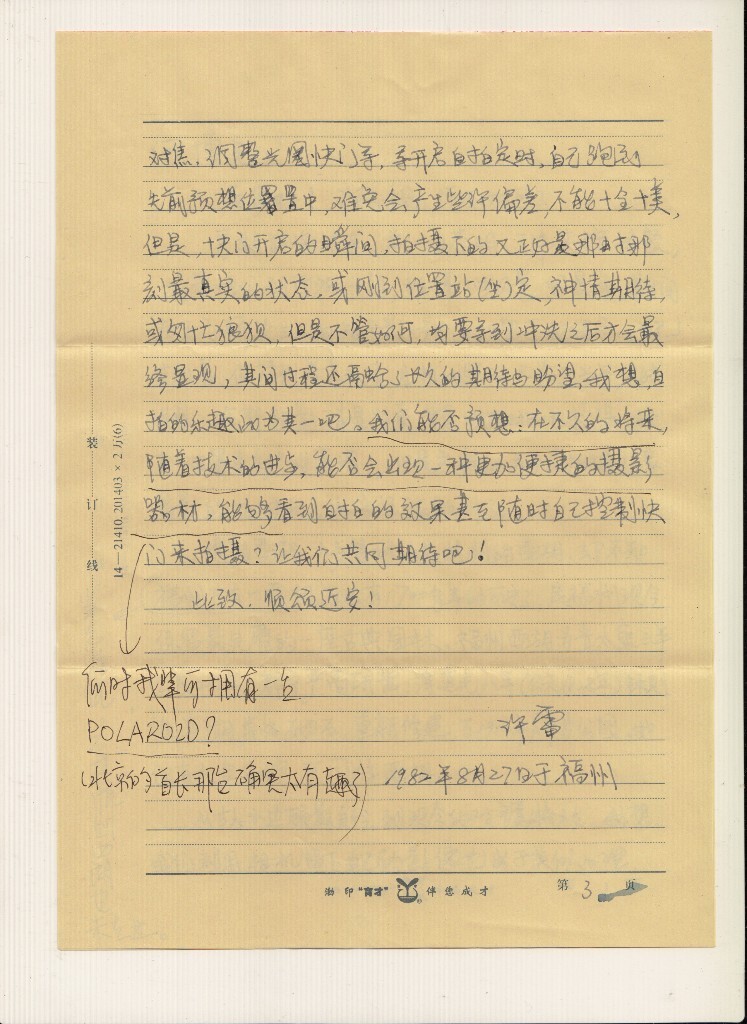 对焦、调整光圈快门等，等开启自拍定时，自己跑到
先前预想位置中，难免会产生些许偏差，不能十全十美，
但是，快门开启的瞬间，拍摄下的又正好是那时那
刻最真实的状态，或刚到位置站(坐)定，神情期待，
或匆忙狼狈，但是不管如何，均要等到冲洗之后才会最
终显现，其间过程还需些久的期待与盼望，我想，自
拍的乐趣为其一吧。我们能否预想：在不久的将来，
随着技术的进步，能否会出现一种更加便捷的摄影
器材，能够看到自拍的效果甚至随时自己控制快
门来拍摄？让我们共同期待吧！
此致，顺颂近安！
何时我辈可拥有一台
POLAROID？
(北京的首长那台确实太有趣了)
许雷
1982年8月27日于福州
装订线
14—21410.201403×2万(6)
渤印"育才" 伴您成才
第 3 页